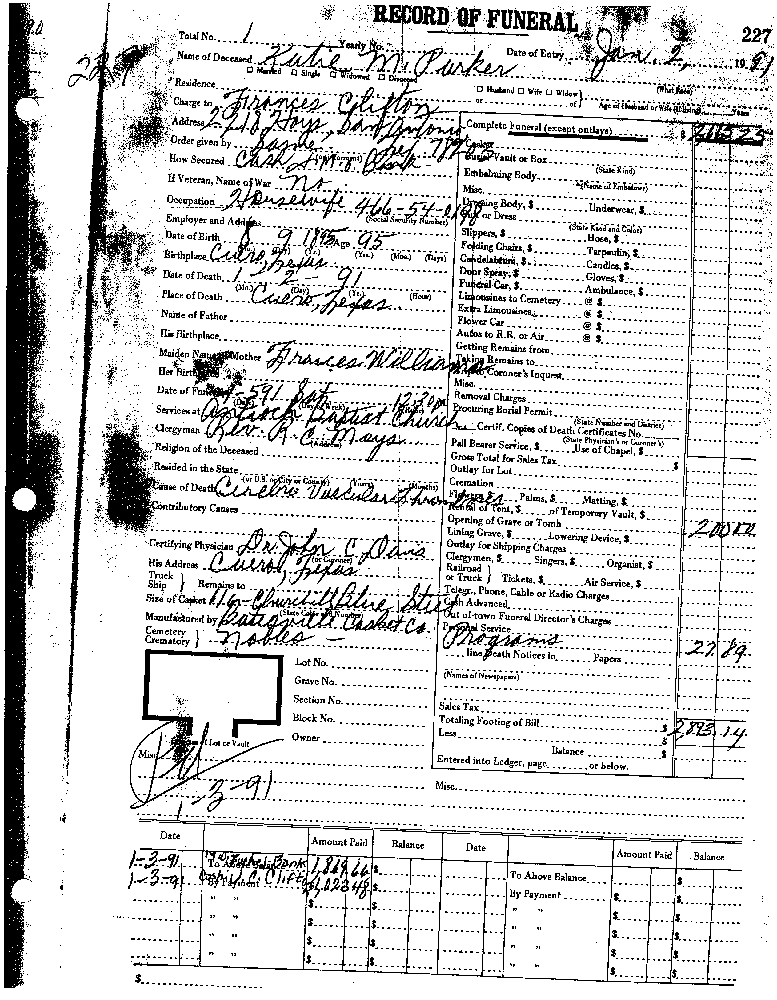 RECORD OF FUNERAL
227
Total No. 1 Yearly No.
Date of Entry Jan. 2, 1991
227
Name of Deceased Katie M. Parker
Married Single Widowed Divorced
Residence
Husband Wife Widow
or of
Age of Husband or Wife (if living) Years
Charge to Frances Clifton
Address 2218 Hays, San Antonio
Order given by Same
How Secured Cash
If Veteran, Name of War No
Occupation Housewife
(Social Security Number)
Employer and Address
Date of Birth 8 9 1895 Age 95
(Yrs.) (Mos.) (Days)
Birthplace Cuero, Texas
Date of Death 1 2 91
(Mo.) (Day) (Yr.) (Hour)
Place of Death Cuero, Texas
Name of Father
His Birthplace
Maiden Name of Mother Frances Williams
Her Birthplace
Date of Funeral 1-5-91 Sat. 12:30 pm
Services at Antioch Baptist Church
Clergyman Rev. R. C. Mays
(Address)
Religion of the Deceased
Resided in the State
(or U.S. or City or County) (Years) (Months)
Cause of Death Cerebro Vascular Thromboses
Contributory Causes
Certifying Physician Dr. John C. Davis
(or Coroner)
His Address Cuero, Texas
Truck
Ship } Remains to
Size of Casket 6/6 Churchill Blue, Steel
(State Color and Number)
Manufactured by Casket Co.
Cemetery
Crematory } Nobles
Lot No.
Grave No.
Section No.
Block No.
Owner
of Lot or Vault
Misc.
1-3-91
Complete Funeral (except outlays) $ 2665.25
Casket
Burial Vault or Box
(State Kind)
Embalming Body
(Name of Embalmer)
Misc.
Dressing Body, $ Underwear, $
Suit or Dress
(State Kind and Color)
Slippers, $ Hose, $
Folding Chairs, $ Tarpaulin, $
Candelabrum, $ Candles, $
Door Spray, $ Gloves, $
Funeral Car, $ Ambulance, $
Limousines to Cemetery @ $
Extra Limousines @ $
Flower Car @ $
Autos to R.R. or Air @ $
Getting Remains from
Taking Remains to
Coroner's Inquest
Misc.
Removal Charges
Procuring Burial Permit
(State Number and District)
Certif. Copies of Death Certificates No.
(State Physician's or Coroner's)
Pall Bearer Service, $ Use of Chapel, $
Gross Total for Sales Tax $
Outlay for Lot
Cremation
Flowers Palms, $ Matting, $
Rental of Tent, $ of Temporary Vault, $
Opening of Grave or Tomb 200.00
Lining Grave, $ Lowering Device, $
Outlay for Shipping Charges
Clergymen, $ Singers, $ Organist, $
Railroad
or Truck } Tickets, $ Air Service, $
Telegr., Phone, Cable or Radio Charges
Cash Advanced
Out-of-town Funeral Director's Charges
Personal Service
Programs 27.89
line Death Notices in Papers
(Names of Newspapers)
Sales Tax
Totaling Footing of Bill $ 2,893.14
Less $
Balance $
Entered into Ledger, page or below.
Misc.
Date Amount Paid Balance Date Amount Paid Balance
1-3-91 To Above Balance Bank 1,869.66 $ To Above Balance $
1-3-91 By Payment C. Clifton 1,023.48 $ By Payment $
" " $
" " $
" " $
" " $
$